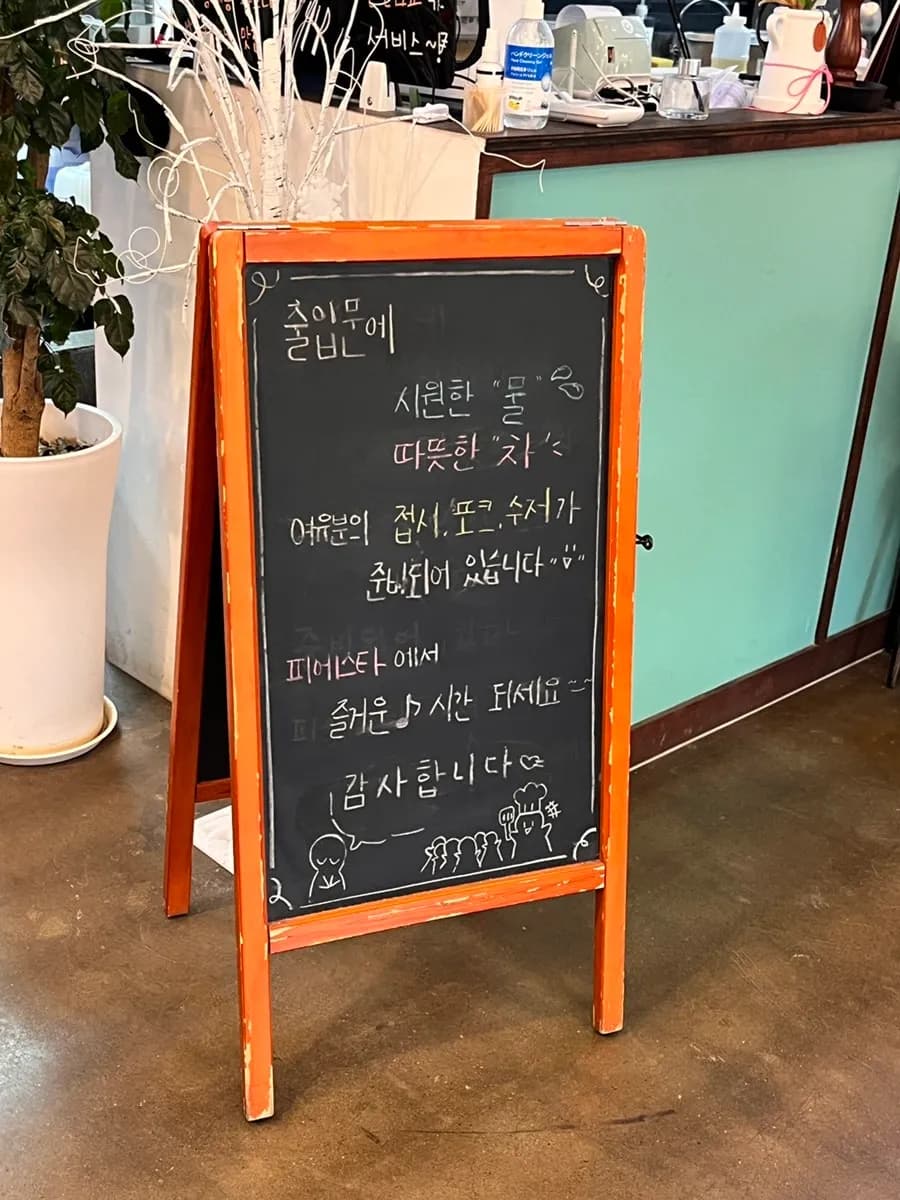 서비스~
ハンドクリーンジェル
Hand Cleaning Gel
출입문에
시원한 "물"
따뜻한 "차"
여유분의 접시, 포크, 수저가
준비되어 있습니다
피에스타 에서
즐거운♪ 시간 되세요
감사합니다